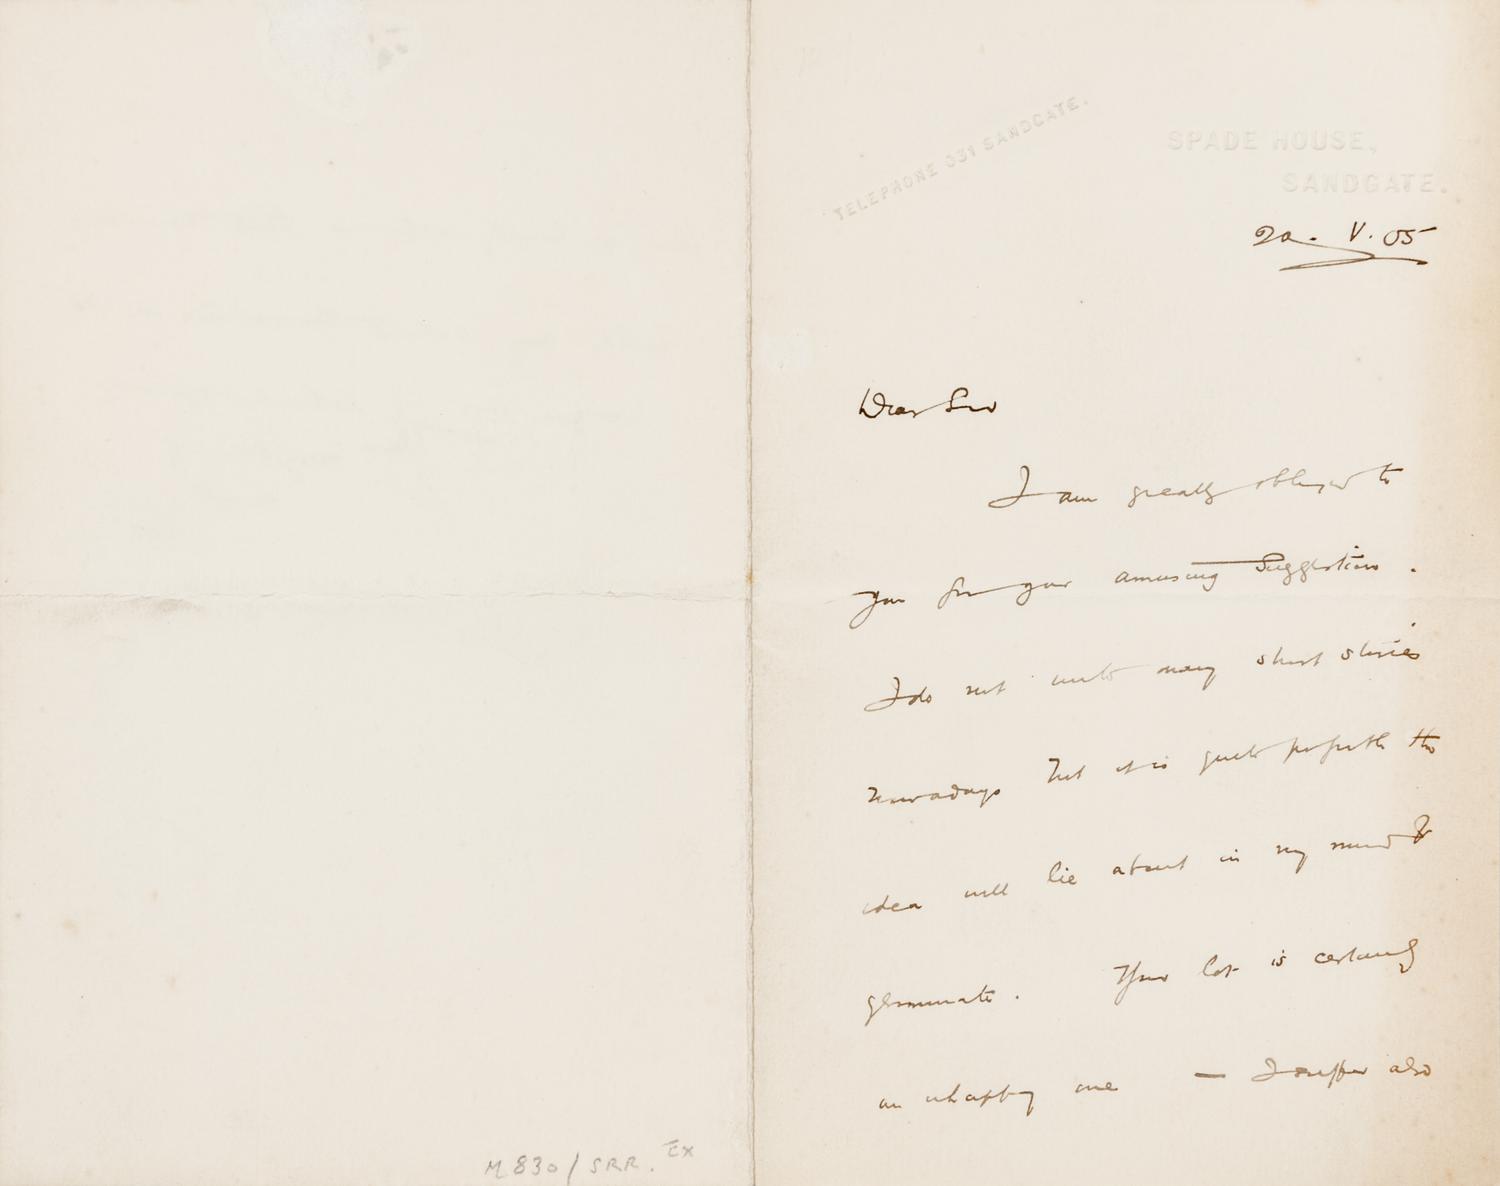 TELEPHONE 031 SANDGATE.
SPADE HOUSE,
SANDGATE.
20. V. 05
Dear Sir
I am greatly obliged to
you for your amusing suggestion.
I do not write many short stories
nowadays but it is quite possible the
idea will lie about in my mind &
germinate. Your lot is certainly
an unhappy one — I suffer also
M830/SRR. Ex